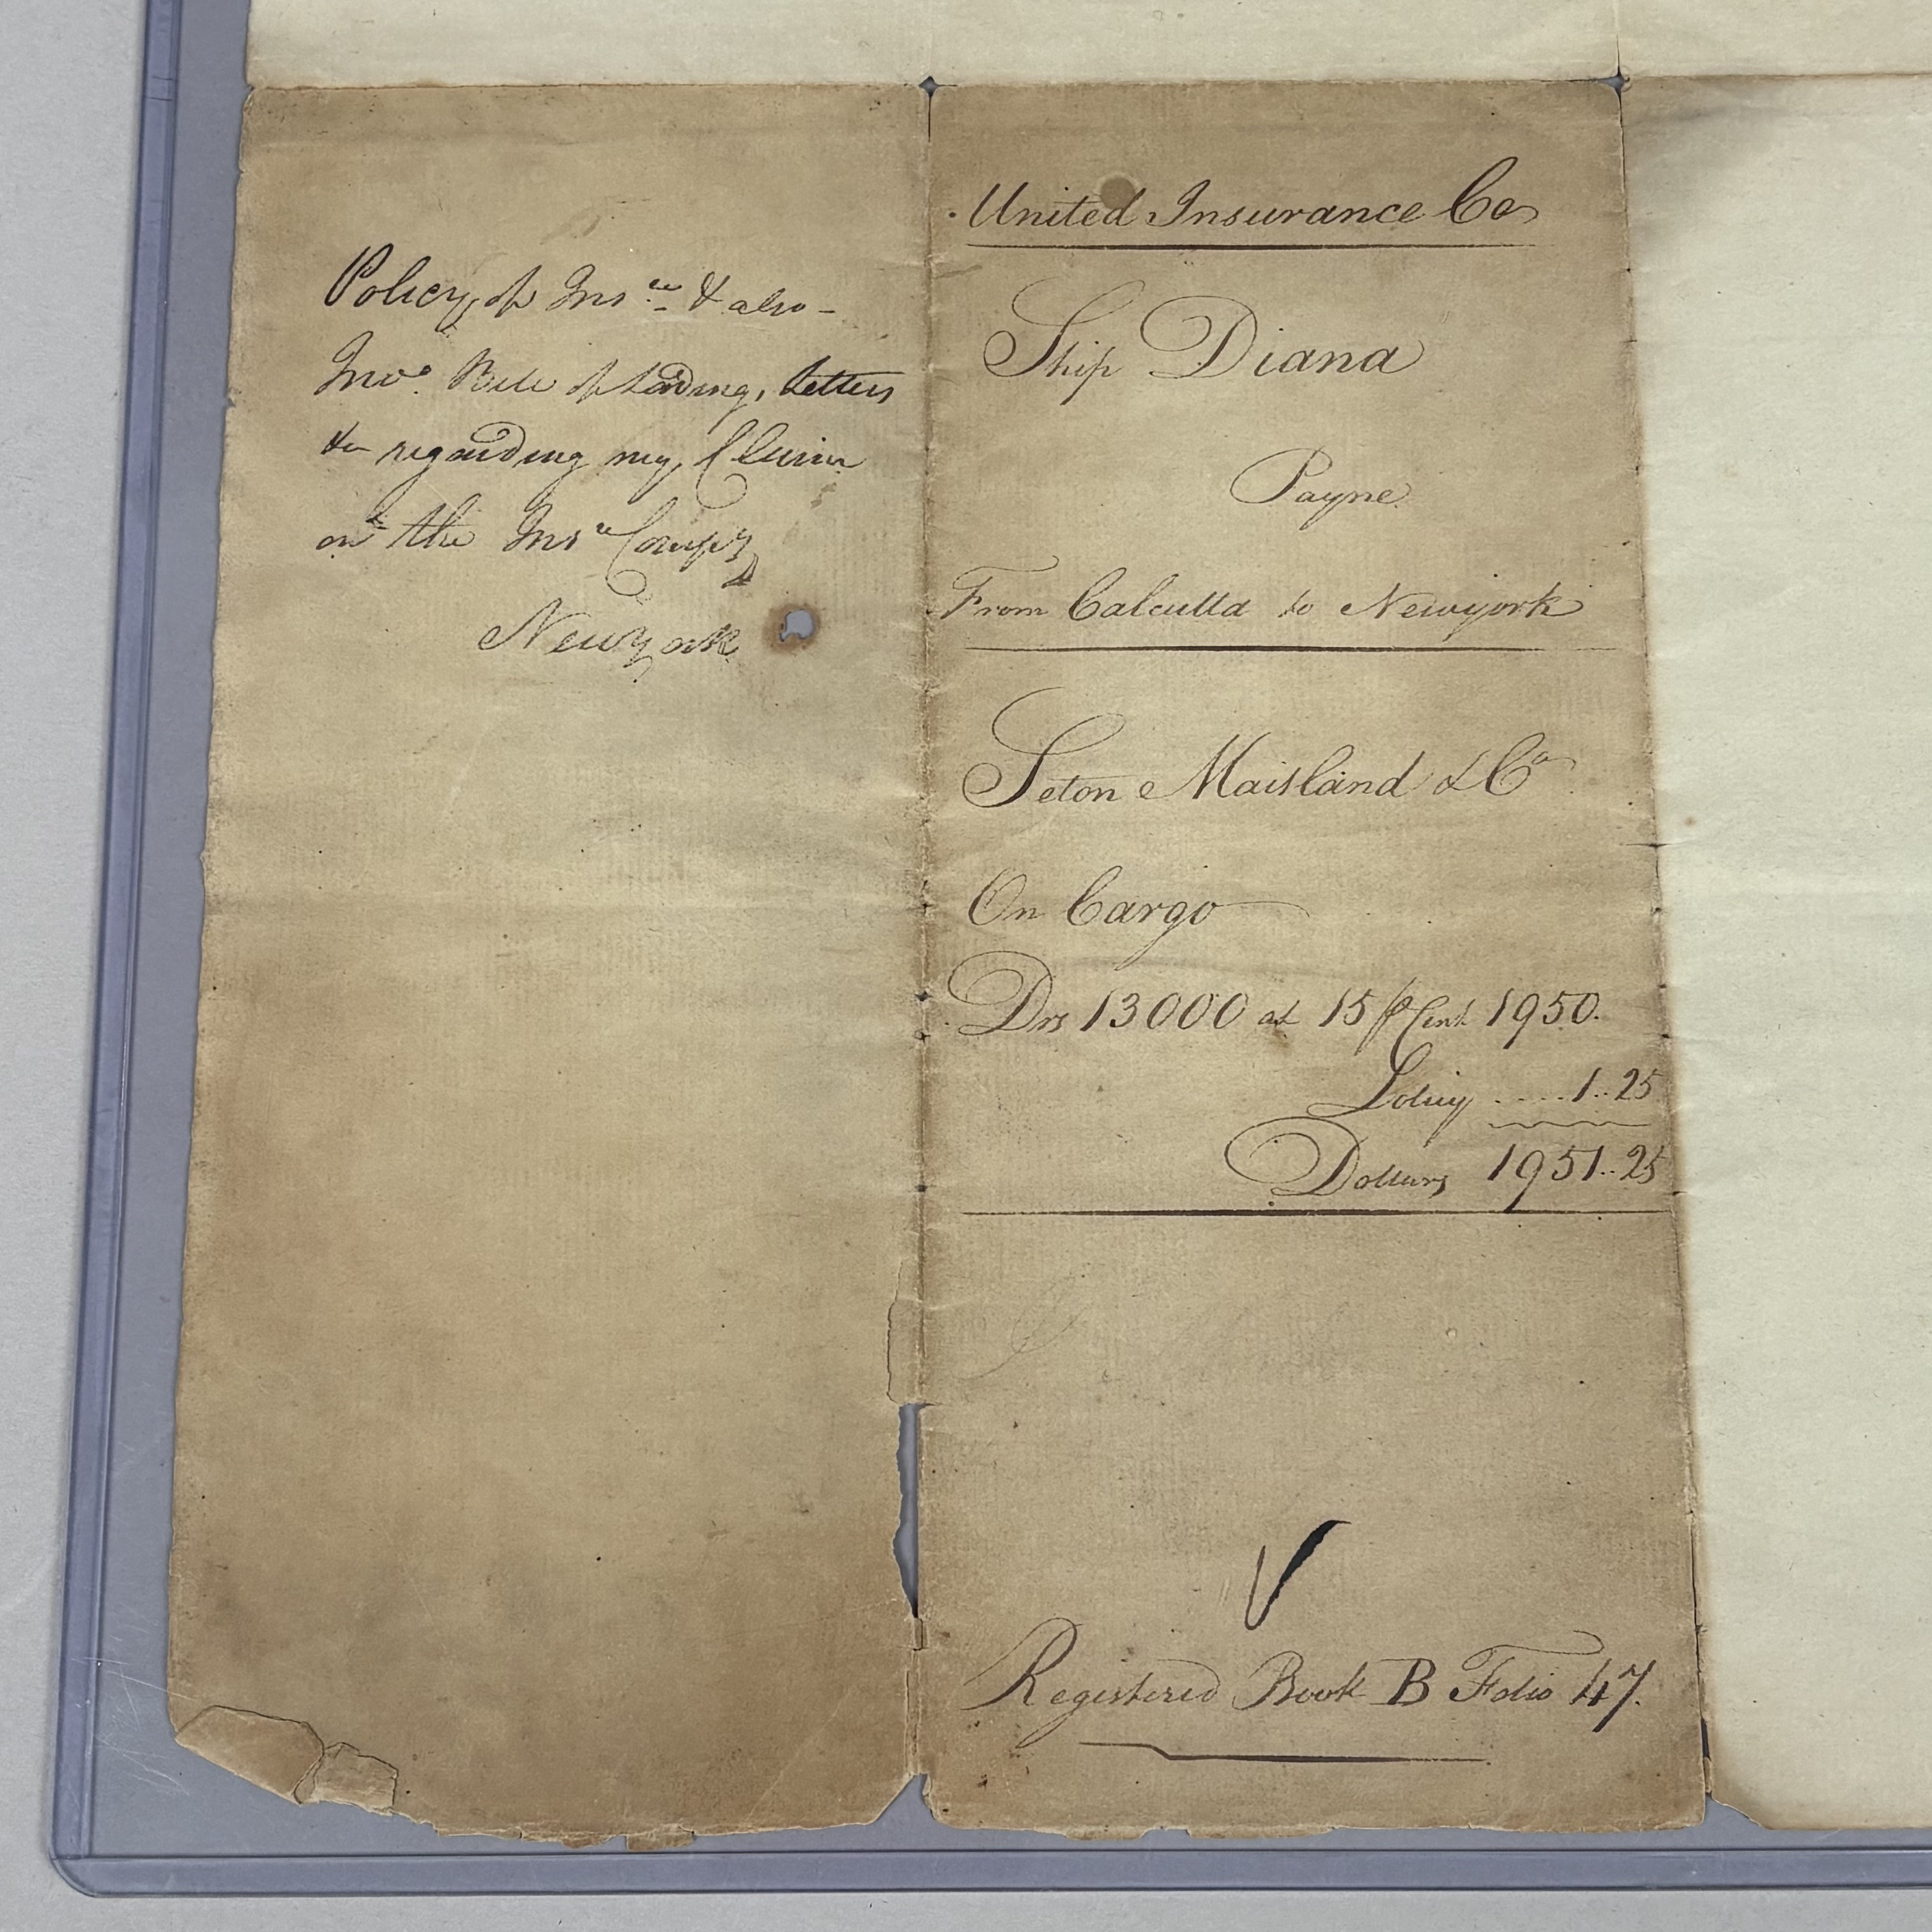 Policy of Insce & also -
Invo. Bill of Lading, Letters
&c regarding my Claim
on the Insce Compy
New York
United Insurance Co
Ship Diana
Payne
From Calcutta to Newyork
Seton Maitland & Co
On Cargo
Drs 13000 at 15 ⅌ Cent 1950.
Policy ....1..25
Dollars 1951..25
Registered Book B Folio 47.